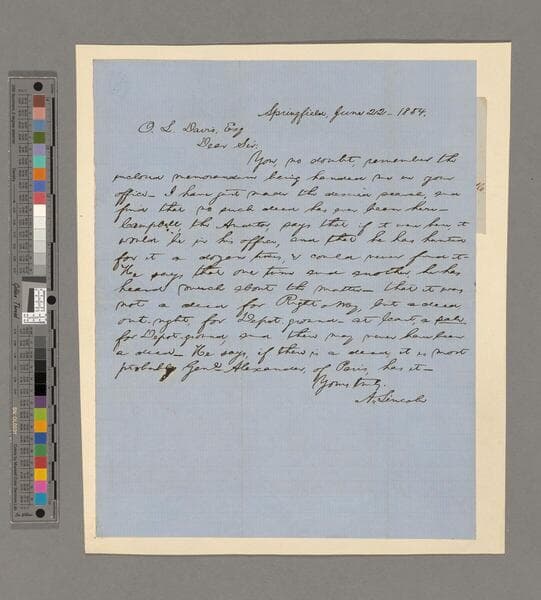 Springfield, June 22- 1854.
O. L. Davis, Esq
Dear Sir:
You, no doubt, remember the
enclosed memorandum being handed me in your
office- I have just made the desired search, and
find that no such deed has ever been here-
Campbell, the Auditor, says that if it were here, it
would be in his office, and that he has hunted
for it a dozen times, & could never find it-
He says that one time and another, he has
heard much about the matter- that it was
not a deed for Right of Way, but a deed
out-right, for Depot-ground- at least, a sale
for Depot-ground, and there may never have been
a deed- He says, if there is a deed, it is most
probable Genl. Alexander, of Paris, has it-
Yours truly
A. Lincoln